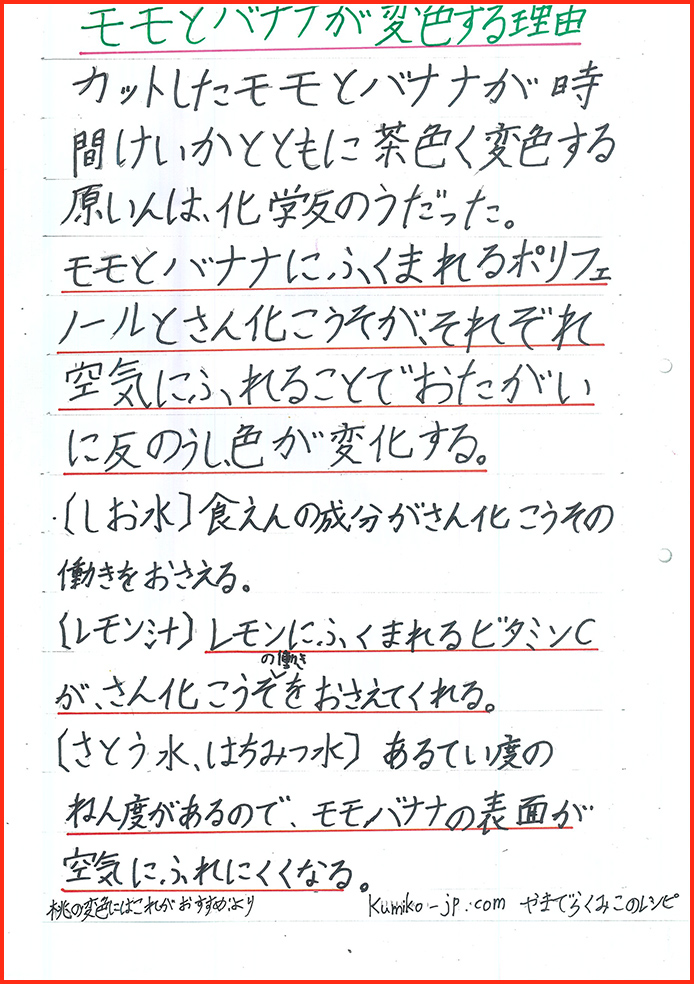 モモとバナナが変色する理由
カットしたモモとバナナが時
間けいかとともに茶色く変色する
原いんは、化学反のうだった。
モモとバナナにふくまれるポリフェ
ノールとさん化こうそが、それぞれ
空気にふれることでおたがい
に反のうし、色が変化する。
・〔しお水〕食えんの成分がさん化こうその
働きをおさえる。
〔レモン汁〕レモンにふくまれるビタミンC
の働き
が、さん化こうそをおさえてくれる。
〔さとう水、はちみつ水〕あるてい度の
ねん度があるので、モモ、バナナの表面が
空気にふれにくくなる。
桃の変色にはこれがおすすめ:より kumiko-jp.com やまでらくみこのレシピ